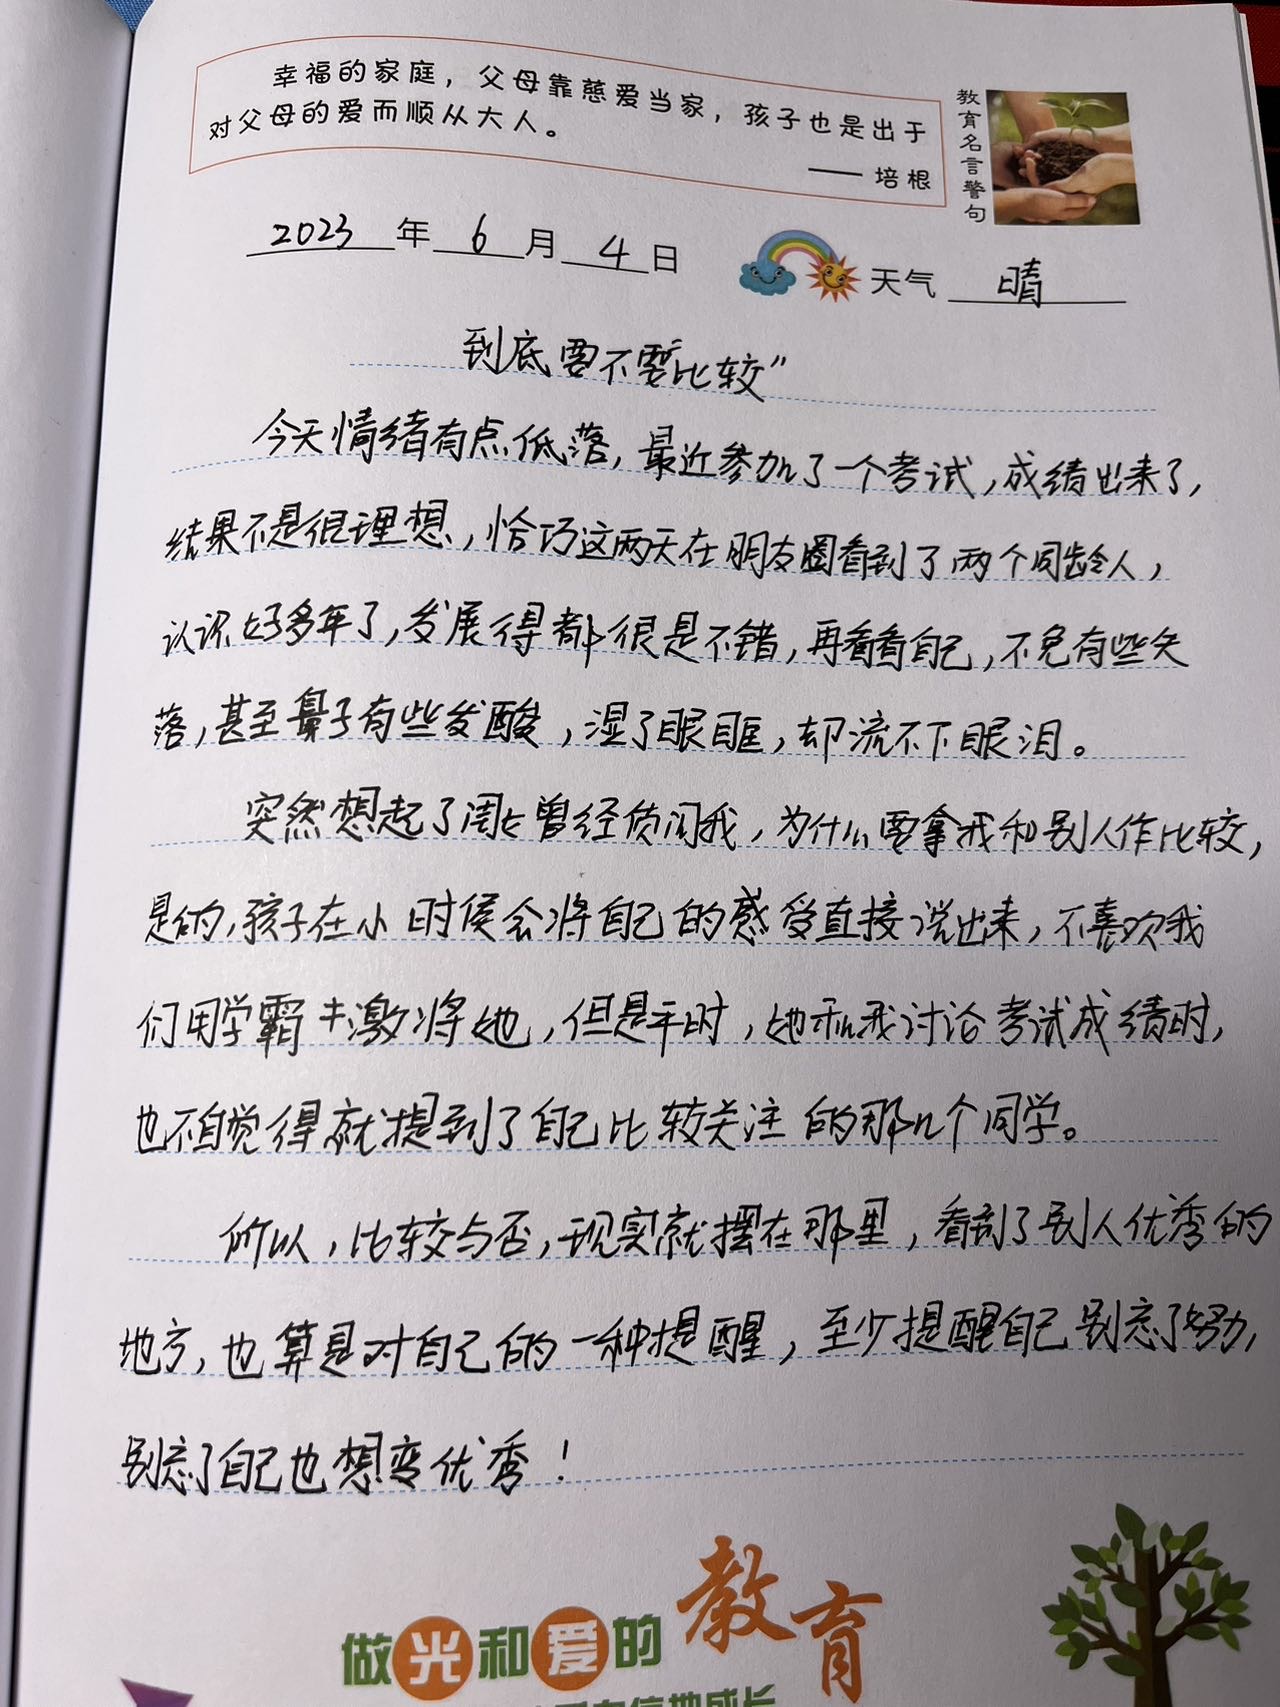 幸福的家庭，父母靠慈爱当家，孩子也是出于
对父母的爱而顺从大人。
—— 培根
教育名言警句
2023 年 6 月 4 日
天气 晴
到底要不要“比较”
今天情绪有点低落，最近参加了一个考试，成绩出来了，
结果不是很理想，恰巧这两天在朋友圈看到了两个同龄人，
认识好多年了，发展得都很是不错，再看看自己，不免有些失
落，甚至鼻子有些发酸，湿了眼眶，却流不下眼泪。
突然想起了周七曾经质问我，为什么要拿我和别人作比较，
是的，孩子在小时候会将自己的感受直接说出来，不喜欢我
们用学霸来激将她，但是平时，她和我讨论考试成绩时，
也不自觉得就提到了自己比较关注的那几个同学。
所以，比较与否，现实就摆在那里，看到了别人优秀的
地方，也算是对自己的一种提醒，至少提醒自己别忘了努力，
别忘了自己也想变优秀！
做光和爱的教育